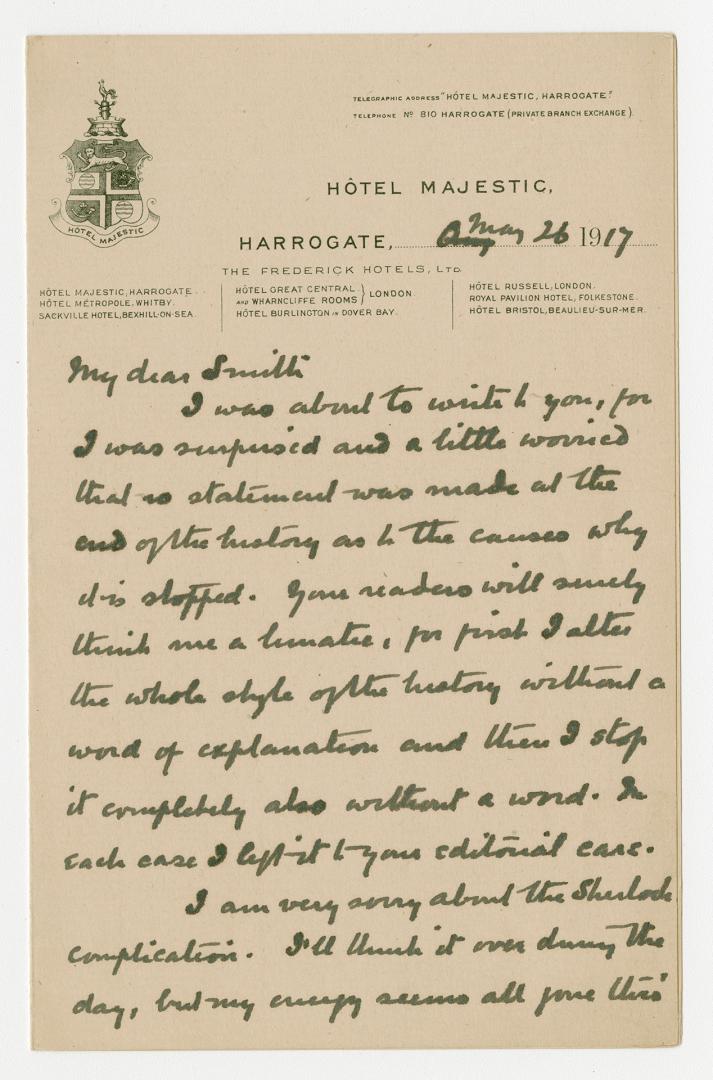 TELEGRAPHIC ADDRESS "HÔTEL MAJESTIC, HARROGATE."
TELEPHONE Nº 810 HARROGATE (PRIVATE BRANCH EXCHANGE).
HÔTEL MAJESTIC
HÔTEL MAJESTIC,
HARROGATE, May 26 1917
THE FREDERICK HOTELS, LTD.
HÔTEL MAJESTIC, HARROGATE.
HÔTEL MÉTROPOLE, WHITBY.
SACKVILLE HOTEL, BEXHILL-ON-SEA.
HÔTEL GREAT CENTRAL
AND WHARNCLIFFE ROOMS } LONDON.
HÔTEL BURLINGTON IN DOVER BAY.
HÔTEL RUSSELL, LONDON.
ROYAL PAVILION HOTEL, FOLKESTONE.
HÔTEL BRISTOL, BEAULIEU-SUR-MER.
My dear Smith
I was about to write to you, for
I was surprised and a little worried
that no statement was made at the
end of the history as to the causes why
it is stopped. Your readers will surely
think me a lunatic, for first I alter
the whole style of the history without a
word of explanation and then I stop
it completely also without a word. In
each case I left it to your editorial care.
I am very sorry about the Sherlock
complication. I'll think it over during the
day, but my energy seems all gone this